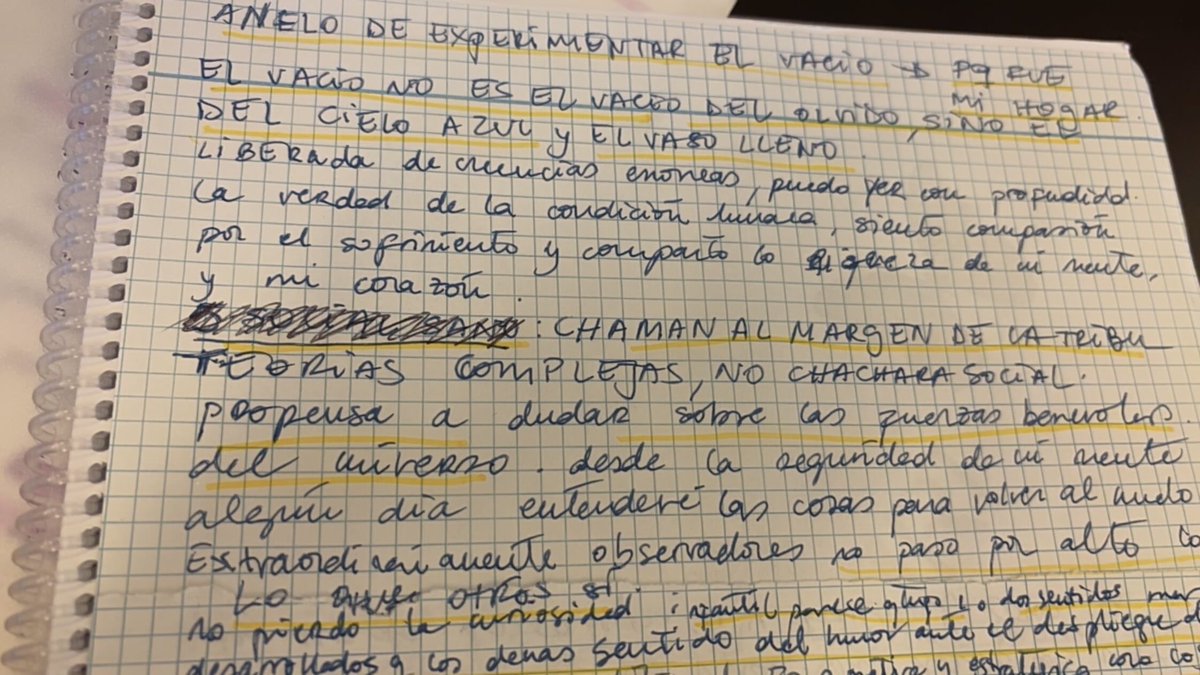 ANELO DE EXPERIMENTAR EL VACIO → PQ FUE
MI HOGAR.
EL VACIO NO ES EL VACIO DEL OLVIDO, SINO ER
DEL CIELO AZUL y EL VASO LLENO.
LIBERADA de creencias erroneas, puedo ver con profundidad.
la verdad de la condición humana, siento compasión
por el sufrimiento y comparto la riqueza de mi mente,
y mi corazón.
: CHAMAN AL MARGEN DE LA TRIBU
TEORIAS COMPLEJAS, NO CHACHARA SOCIAL.
propensa a dudar sobre las fuerzas benevolas
del universo. desde la seguridad de mi mente
algún día entenderé las cosas para volver al mundo
Extraordinariamente observadores no paso por alto lo
LO QUE OTROS SÍ.
no pierdo la curiosidad infantil parece q tengo los dos sentidos mas
desarrollados q los demas sentido del humor ante el despliegue d
y estatuica cara co